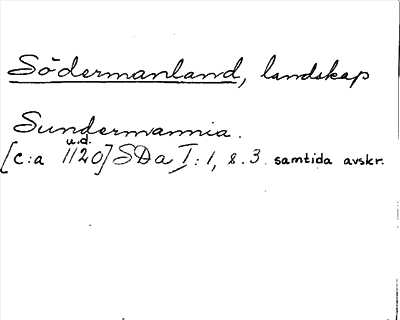 Södermanland, landskap
Sundermannia.
u.d.
[c:a 1120] SDa I:1, s. 3. samtida avskr.